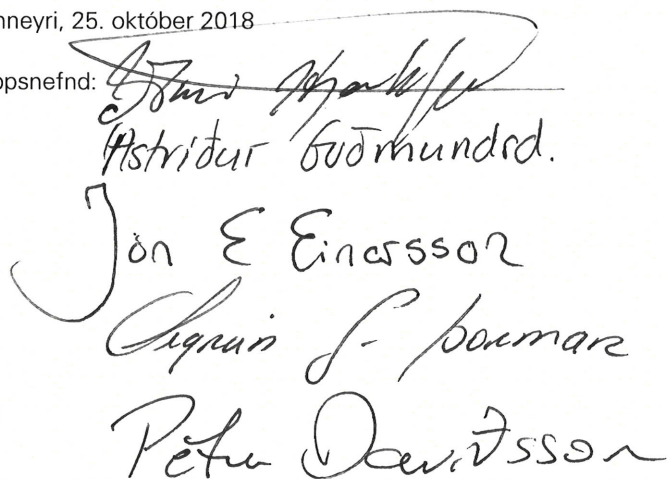 nneyri, 25. október 2018
ppsnefnd:
Ástríður Guðmundsd.
Jón E Einarsson
Sigrún Þormar
Pétur Davíðsson